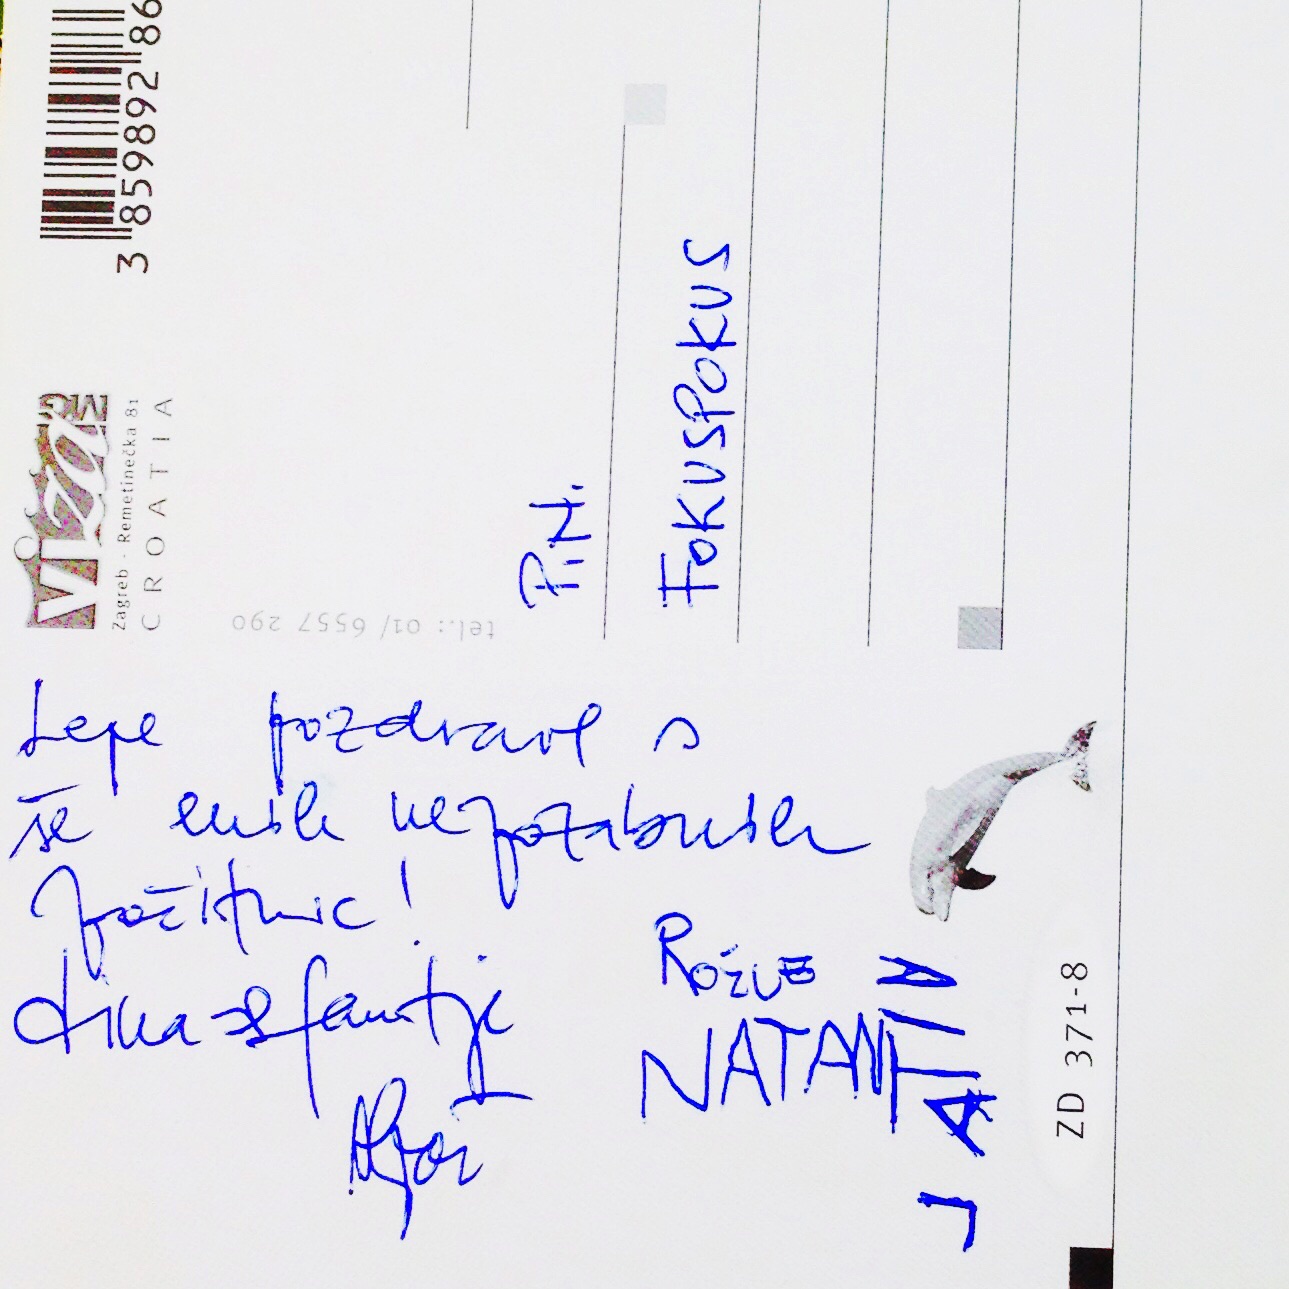 Lepe pozdrave s
še enih nepozabnih
počitnic!
Alja
Rožle
NATAN
JATTIA
P.N.
FOKUSPOKUS
viza MG
Zagreb - Remetinečka 81
CROATIA
tel.: 01/ 6557 290
3 859892 86
ZD 371-8